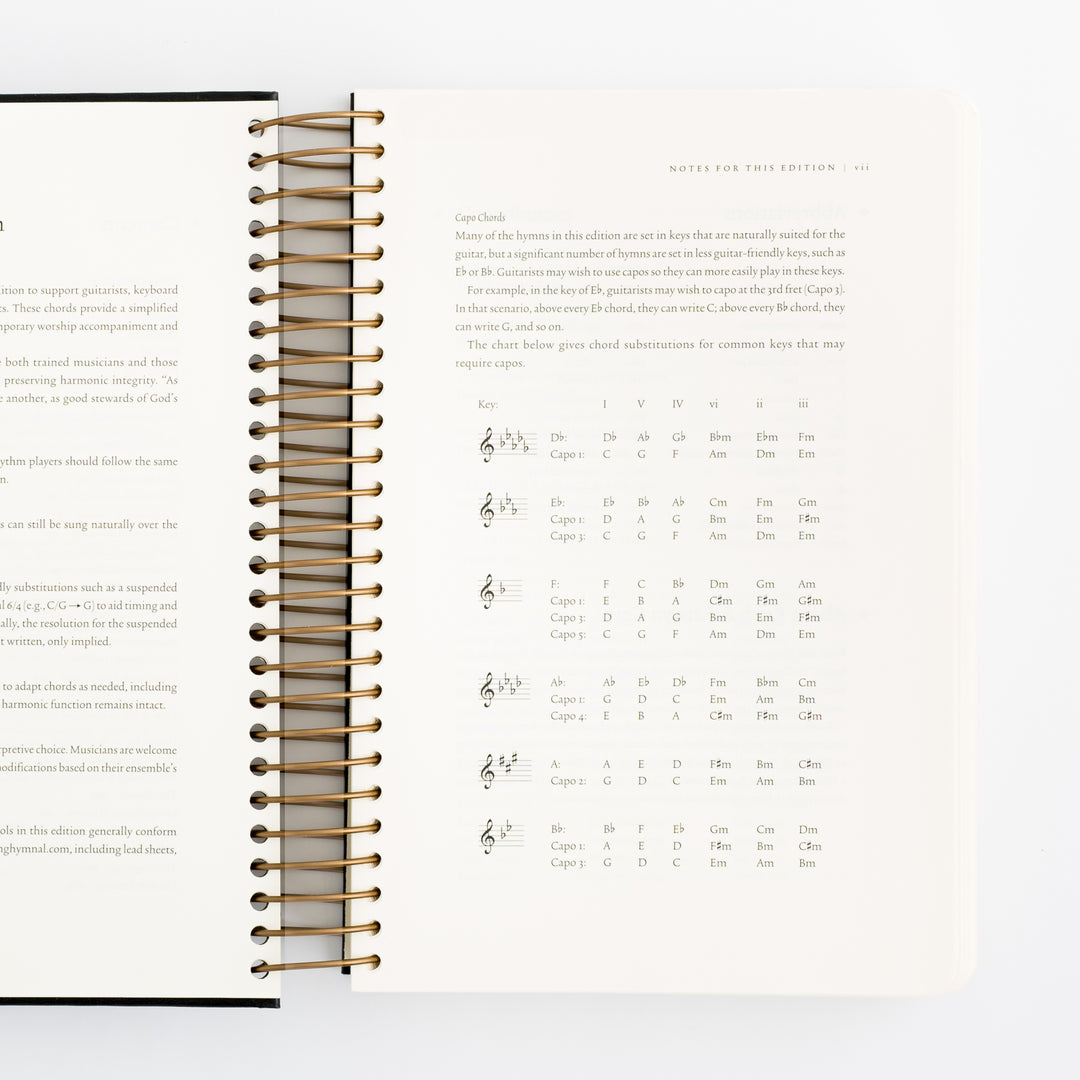 n
ition to support guitarists, keyboard
ts. These chords provide a simplified
mporary worship accompaniment and
both trained musicians and those
preserving harmonic integrity. “As
e another, as good stewards of God’s
ythm players should follow the same
n.
s can still be sung naturally over the
dly substitutions such as a suspended
al 6/4 (e.g., C/G → G) to aid timing and
ally, the resolution for the suspended
t written, only implied.
to adapt chords as needed, including
harmonic function remains intact.
rpretive choice. Musicians are welcome
modifications based on their ensemble’s
ols in this edition generally conform
nghymnal.com, including lead sheets,
NOTES FOR THIS EDITION | vii
Capo Chords
Many of the hymns in this edition are set in keys that are naturally suited for the
guitar, but a significant number of hymns are set in less guitar-friendly keys, such as
E♭ or B♭. Guitarists may wish to use capos so they can more easily play in these keys.
For example, in the key of E♭, guitarists may wish to capo at the 3rd fret (Capo 3).
In that scenario, above every E♭ chord, they can write C; above every B♭ chord, they
can write G, and so on.
The chart below gives chord substitutions for common keys that may
require capos.
Key: I V IV vi ii iii
D♭: D♭ A♭ G♭ B♭m E♭m Fm
Capo 1: C G F Am Dm Em
E♭: E♭ B♭ A♭ Cm Fm Gm
Capo 1: D A G Bm Em F♯m
Capo 3: C G F Am Dm Em
F: F C B♭ Dm Gm Am
Capo 1: E B A C♯m F♯m G♯m
Capo 3: D A G Bm Em F♯m
Capo 5: C G F Am Dm Em
A♭: A♭ E♭ D♭ Fm B♭m Cm
Capo 1: G D C Em Am Bm
Capo 4: E B A C♯m F♯m G♯m
A: A E D F♯m Bm C♯m
Capo 2: G D C Em Am Bm
B♭: B♭ F E♭ Gm Cm Dm
Capo 1: A E D F♯m Bm C♯m
Capo 3: G D C Em Am Bm